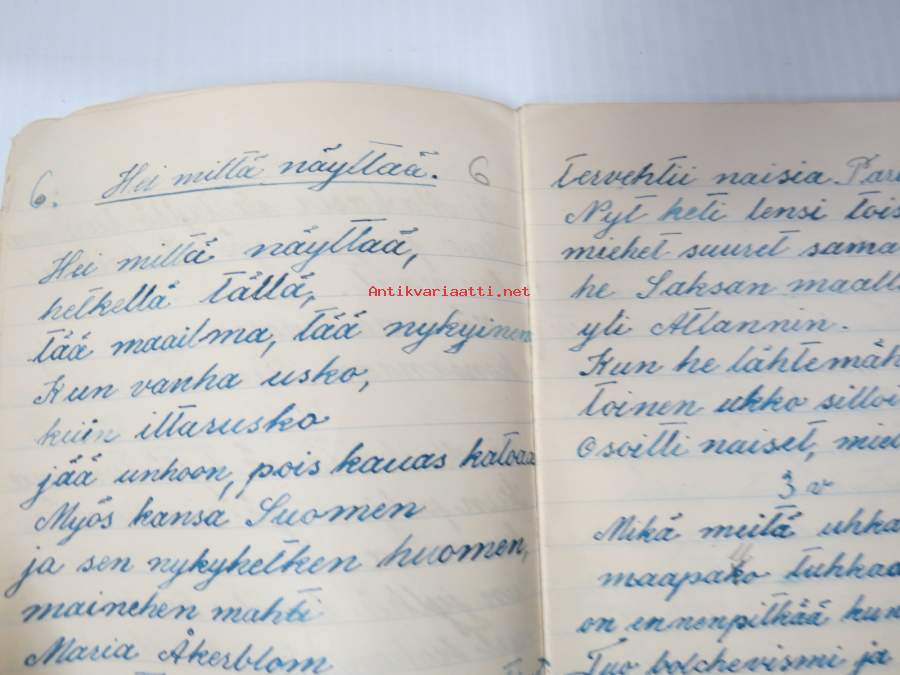 6. Hei miltä näyttää. 6
Hei miltä näyttää,
hetkellä tällä,
tää maailma, tää nykyinen
Kun vanha usko,
kuin iltarusko
jää unhoon, pois kauas katoaa
Myös kansa Suomen
ja sen nykyhetken huomen,
mainehen mahti
Maria Åkerblom
tervehtii naisia Pari
Nyt heti lensi tois
miehet suuret sama
he Saksan maalle
yli Atlannin.
Kun he lähtemäh
toinen ukko silloi
osoitti naiset, miel
3 v
Mikä meitä uhka
maapako tuhkaa
on ennenpitkää kun
Tuo bolchevismi ja
Antikvariaatti.net